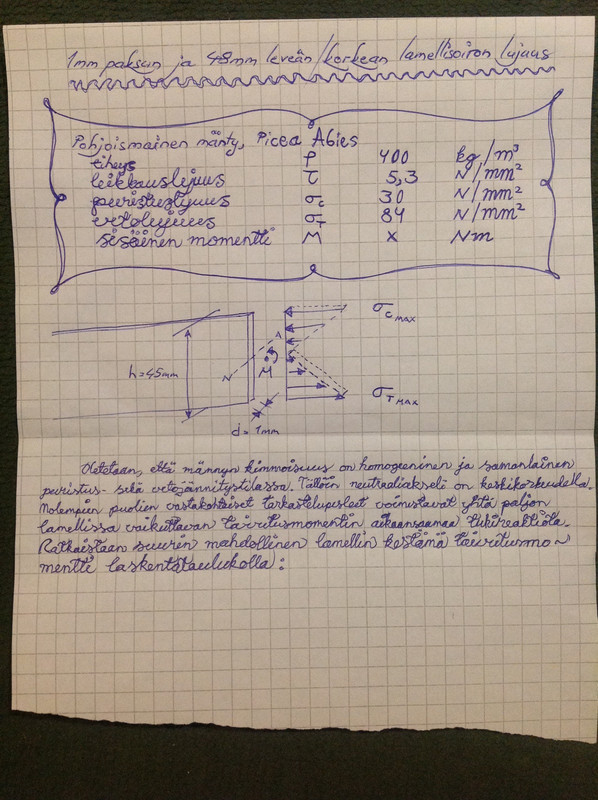 1mm paksun ja 48mm leveän/korkean lamellisoiron lujuus
Pohjoismainen mänty, Picea Abies
tiheys ρ 400 kg/m³
leikkauslujuus τ 5,3 N/mm²
puristuslujuus σc 30 N/mm²
vetolujuus σT 84 N/mm²
sisäinen momentti M x Nm
σC MAX
A
h=45mm
M
N
σT MAX
d=1mm
Oletetaan, että männyn kimmoisuus on homogeeninen ja samanlainen
puristus- sekä vetojännitystilassa. Tällöin neutraaliakseli on keskikorkeudella.
Molempien puolien vastakohtaiset tarkastelupisteet voimistavat yhtä paljon
lamellissa vaikuttavan taivutusmomentin aikaansaamaa tukireaktiota.
Ratkaistaan suurin mahdollinen lamellin kestämä taivutusmo~
mentti laskentataulukolla: